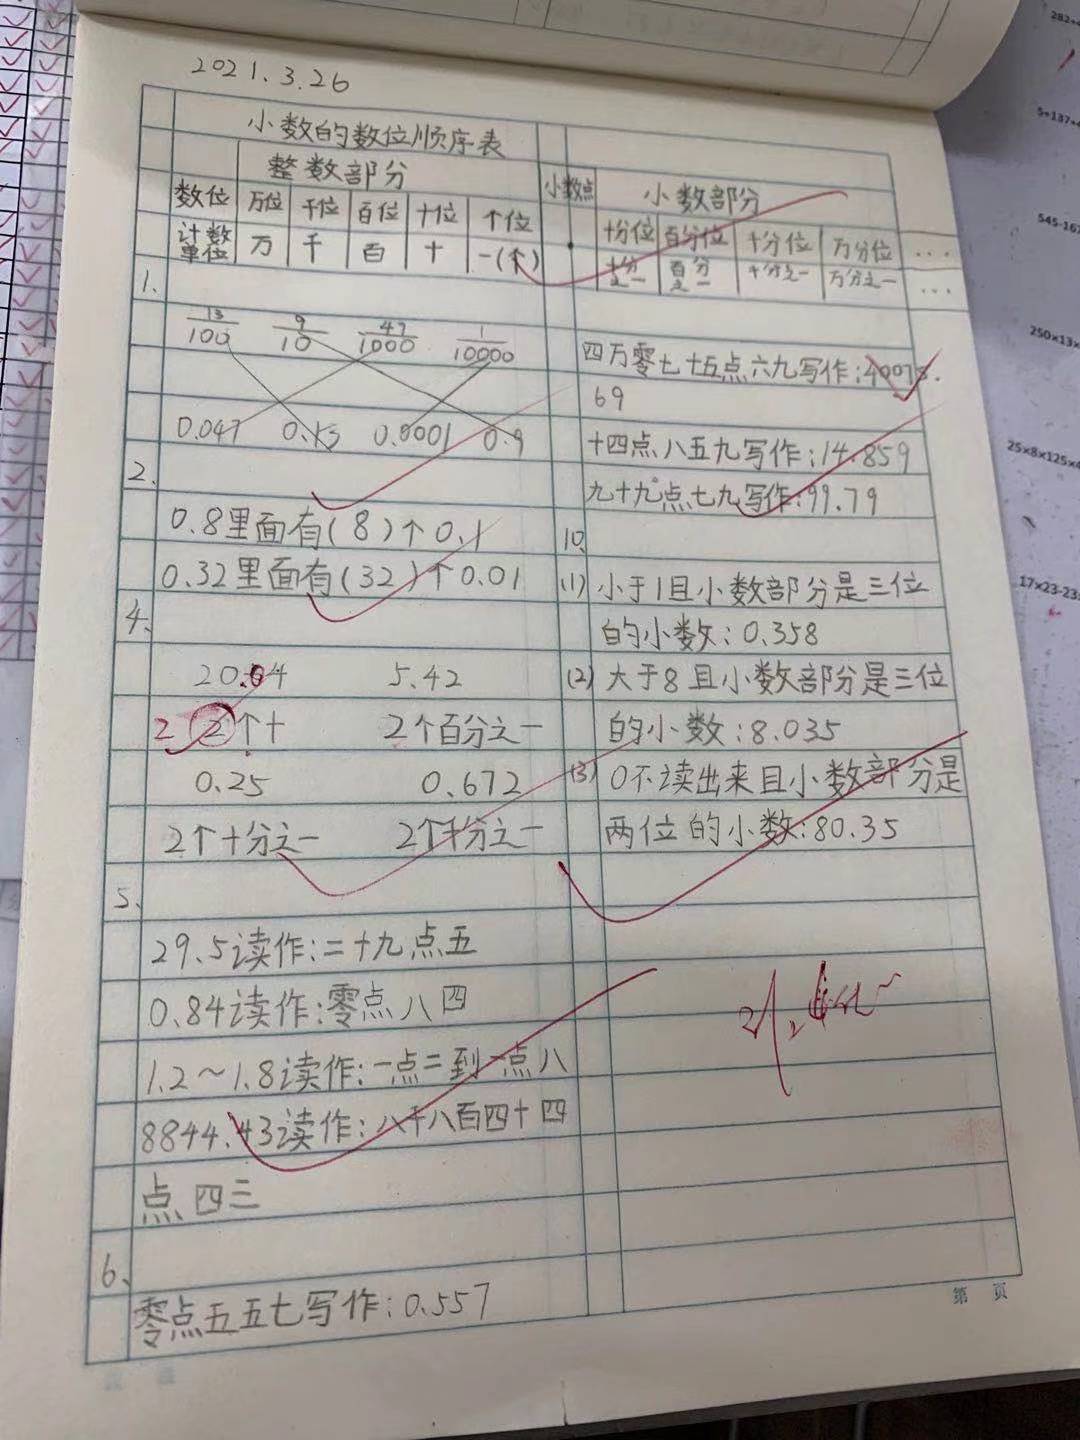 2021.3.26
小数的数位顺序表
整数部分 小数点 小数部分
数位 万位 千位 百位 十位 个位 十分位 百分位 千分位 万分位 ...
计数单位 万 千 百 十 一(个) 十分之一 百分之一 千分之一 万分之一 ...
1.
13/100 9/10 47/1000 1/10000
0.047 0.13 0.0001 0.9
2.
0.8里面有(8)个0.1
0.32里面有(32)个0.01
4.
20.04 5.42
2 2个十 2个百分之一
0.25 0.672
2个十分之一 2个千分之一
5.
29.5读作:二十九点五
0.84读作:零点八四
1.2~1.8读作:一点二到一点八
8844.43读作:八千八百四十四
点四三
6.
零点五五七写作:0.557
四万零七十五点六九写作:40075.
69
十四点八五九写作:14.859
九十九点七九写作:99.79
10.
(1)小于1且小数部分是三位
的小数:0.358
(2)大于8且小数部分是三位
的小数:8.035
(3)0不读出来且小数部分是
两位的小数:80.35
第 页
282+
5+137+
545-167
250×13×
25×8×125×4
17×23-23×